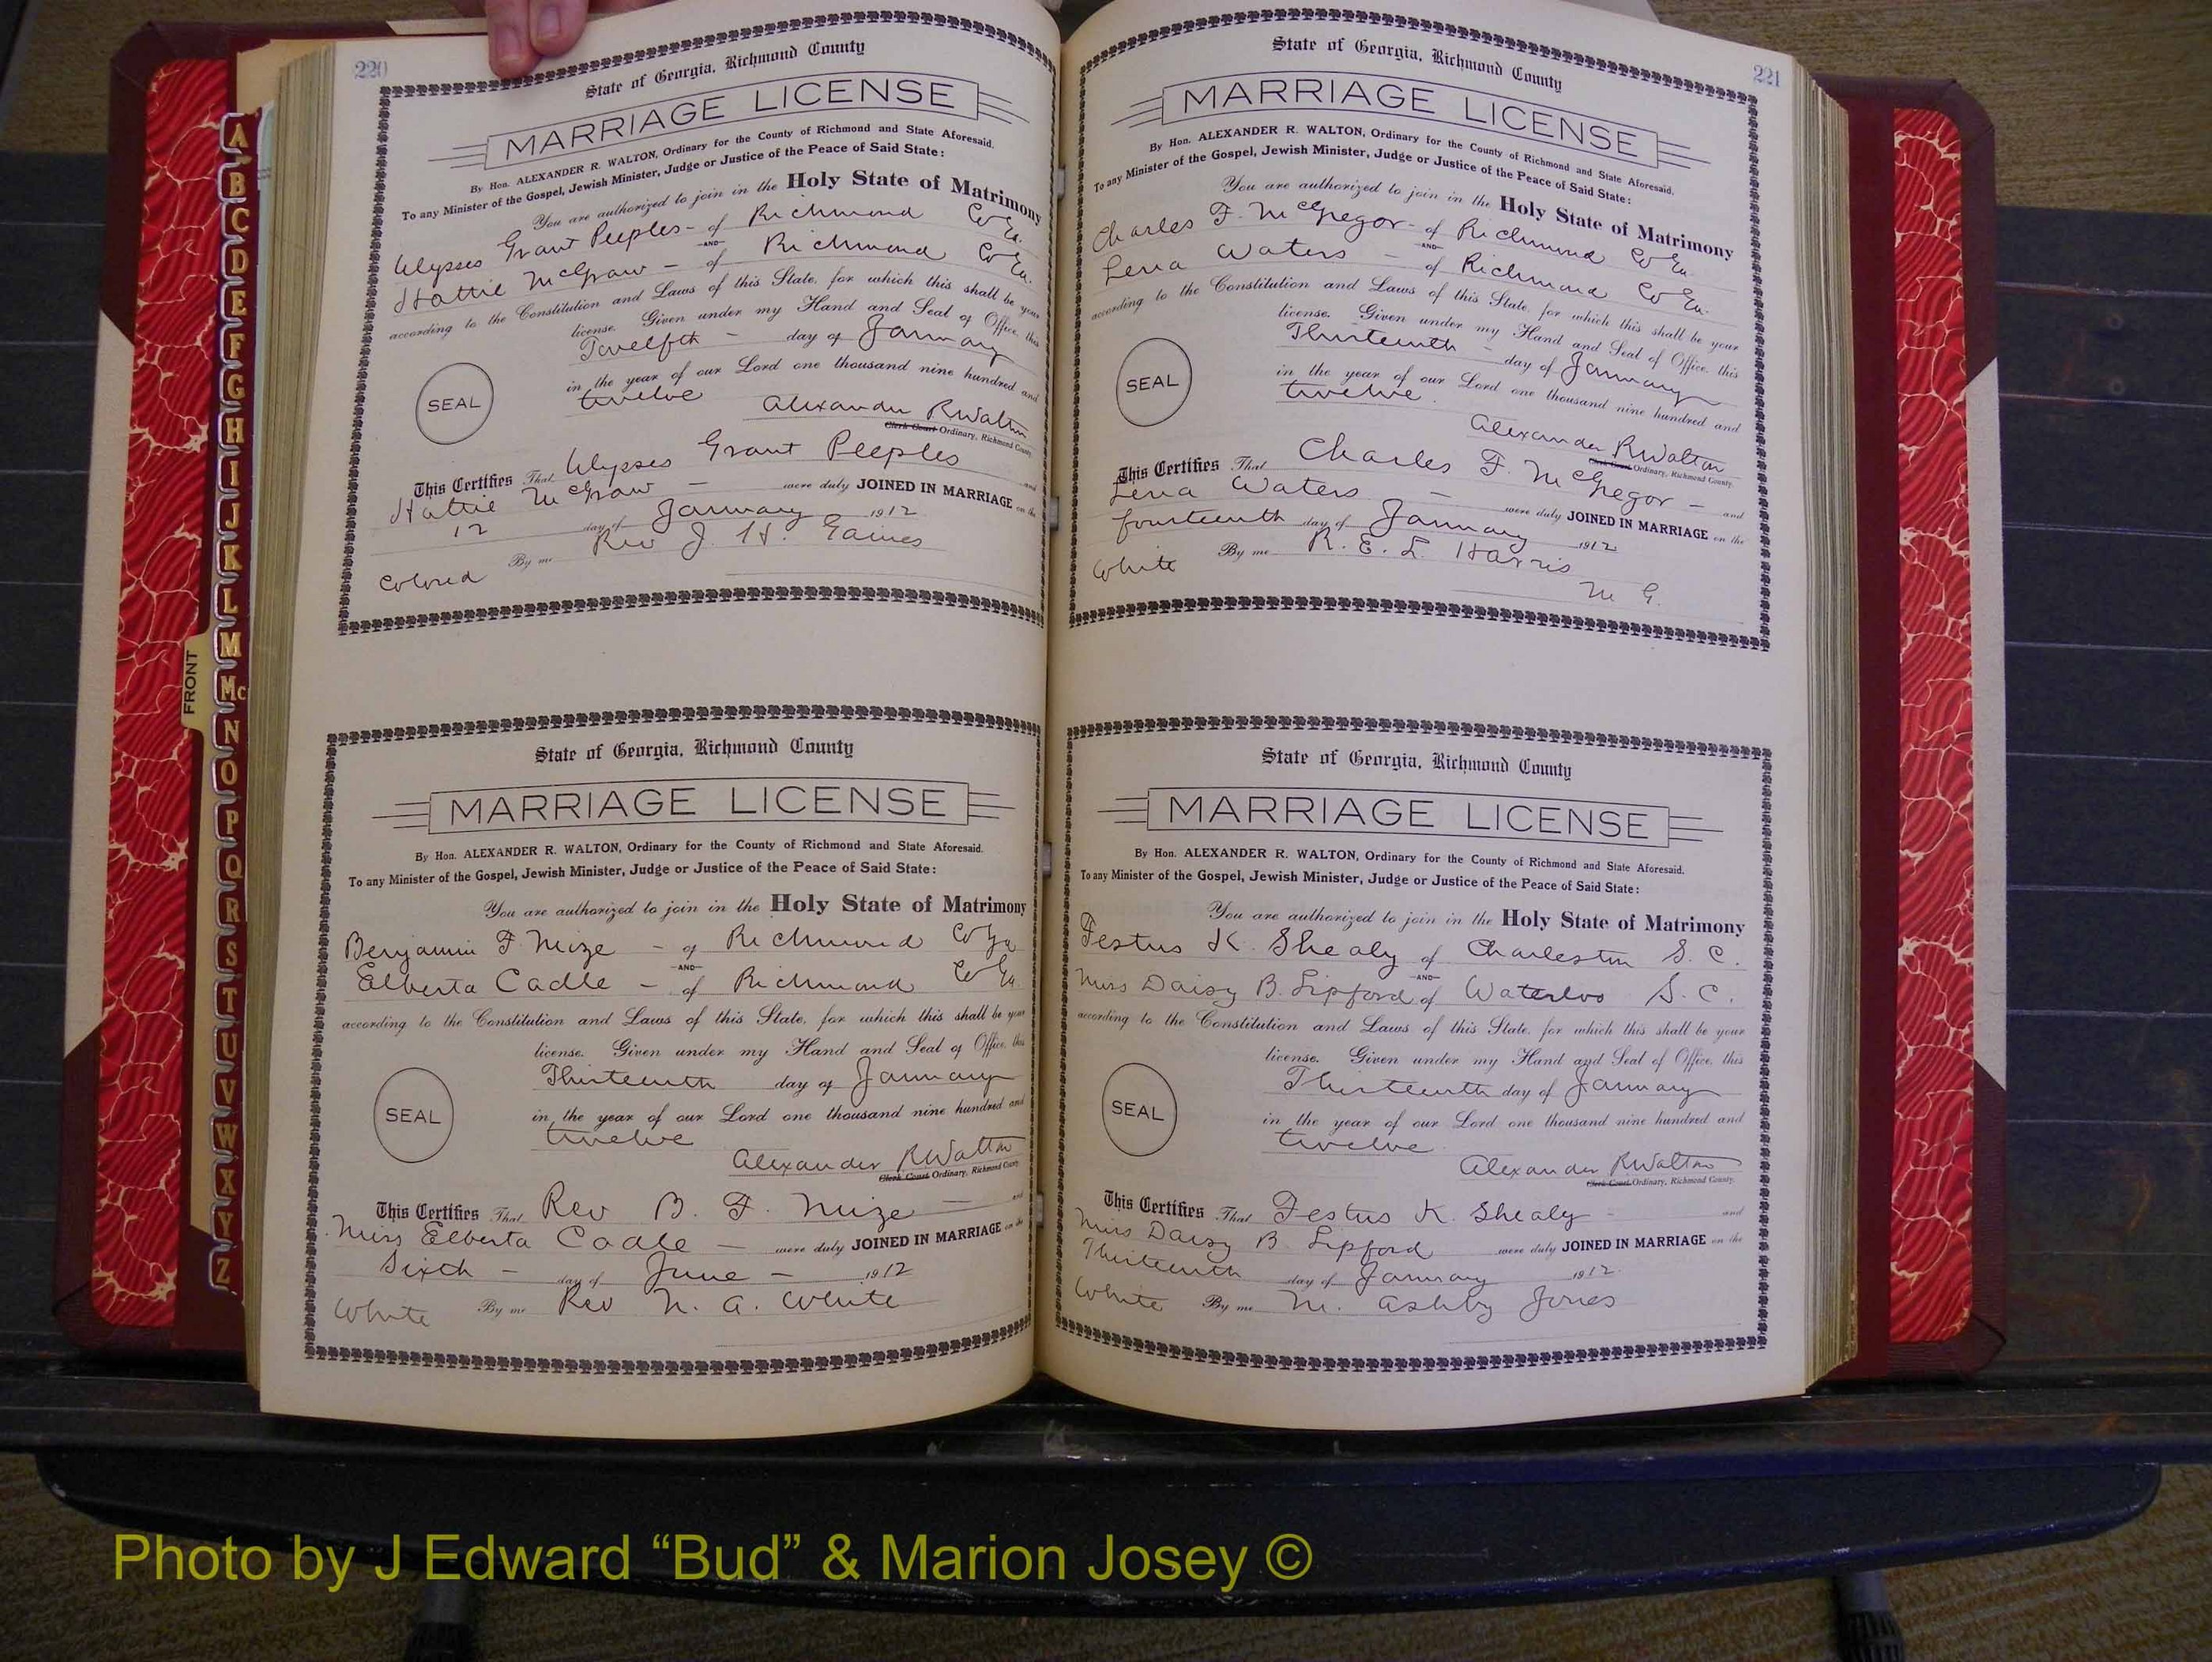 220
State of Georgia, Richmond County
MARRIAGE LICENSE
By Hon. ALEXANDER R. WALTON, Ordinary for the County of Richmond and State Aforesaid.
To any Minister of the Gospel, Jewish Minister, Judge or Justice of the Peace of Said State:
You are authorized to join in the Holy State of Matrimony
Ulysses Grant Peeples - of Richmond Co Ga.
AND
Hattie McGraw - of Richmond Co Ga.
according to the Constitution and Laws of this State, for which this shall be your
license. Given under my Hand and Seal of Office, this
Twelfth - day of January
in the year of our Lord one thousand nine hundred and
SEAL
twelve
Alexander R Walton
Clerk Court Ordinary, Richmond County
This Certifies That Ulysses Grant Peeples and
Hattie McGraw - were duly JOINED IN MARRIAGE on the
12 day of January 1912
By me Rev J. H. Gaines
Colored
State of Georgia, Richmond County
MARRIAGE LICENSE
By Hon. ALEXANDER R. WALTON, Ordinary for the County of Richmond and State Aforesaid.
To any Minister of the Gospel, Jewish Minister, Judge or Justice of the Peace of Said State:
You are authorized to join in the Holy State of Matrimony
Benjamin F Mize - of Richmond Co Ga
AND
Elberta Cadle - of Richmond Co Ga.
according to the Constitution and Laws of this State, for which this shall be your
license. Given under my Hand and Seal of Office, this
Thirteenth day of January
SEAL
in the year of our Lord one thousand nine hundred and
twelve
Alexander R Walton
Clerk Court Ordinary, Richmond County
This Certifies That Rev B. F. Mize - and
Miss Elberta Cadle - were duly JOINED IN MARRIAGE on the
Sixth - day of June - 1912
White By me Rev N. A. White
221
State of Georgia, Richmond County
MARRIAGE LICENSE
By Hon. ALEXANDER R. WALTON, Ordinary for the County of Richmond and State Aforesaid.
To any Minister of the Gospel, Jewish Minister, Judge or Justice of the Peace of Said State:
You are authorized to join in the Holy State of Matrimony
Charles F. McGregor - of Richmond Co Ga.
AND
Lena Waters - of Richmond Co Ga.
according to the Constitution and Laws of this State, for which this shall be your
license. Given under my Hand and Seal of Office, this
Thirteenth - day of January
SEAL
in the year of our Lord one thousand nine hundred and
twelve.
Alexander R Walton
Clerk Court Ordinary, Richmond County.
This Certifies That Charles F. McGregor - and
Lena Waters - were duly JOINED IN MARRIAGE on the
fourteenth day of January 1912
White By me R. E. L. Harris
M G.
State of Georgia, Richmond County
MARRIAGE LICENSE
By Hon. ALEXANDER R. WALTON, Ordinary for the County of Richmond and State Aforesaid.
To any Minister of the Gospel, Jewish Minister, Judge or Justice of the Peace of Said State:
You are authorized to join in the Holy State of Matrimony
Festus K. Shealy of Charleston S. C.
AND
Miss Daisy B. Lipford of Waterloo S. C.
according to the Constitution and Laws of this State, for which this shall be your
license. Given under my Hand and Seal of Office, this
Thirteenth day of January
SEAL
in the year of our Lord one thousand nine hundred and
twelve.
Alexander R Walton
Clerk Court Ordinary, Richmond County.
This Certifies That Festus K. Shealy - and
Miss Daisy B Lipford were duly JOINED IN MARRIAGE on the
Thirteenth day of January 1912.
White By me M. Ashby Jones
FRONT
A
B
C
D
E
F
G
H
I
J
K
L
M
Mc
N
O
P
Q
R
S
T
U
V
W
X
Y
Z
Photo by J Edward “Bud” & Marion Josey ©